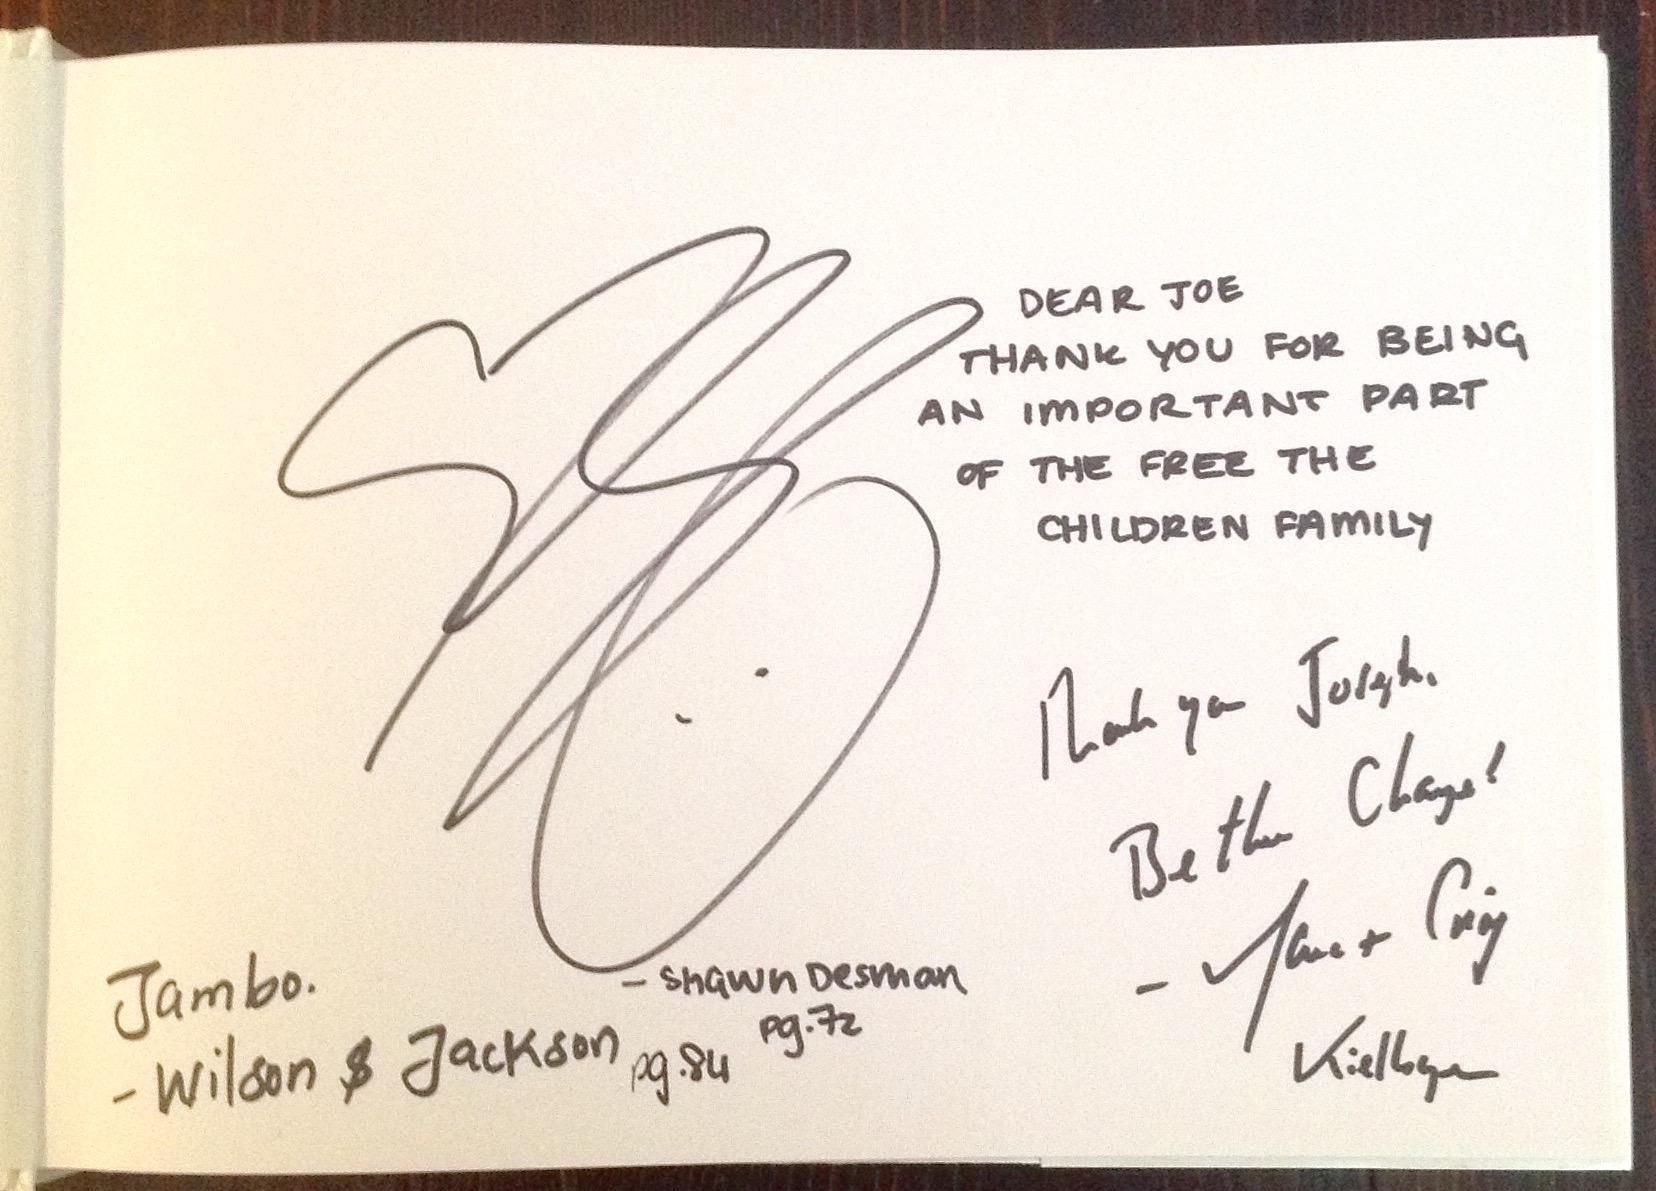 DEAR JOE
THANK YOU FOR BEING
AN IMPORTANT PART
OF THE FREE THE
CHILDREN FAMILY
Thank you Joseph.
Be the Change!
- Marc + Craig
Kielburger
- Shawn Desman
pg.72
Jambo.
- Wilson & Jackson pg.84